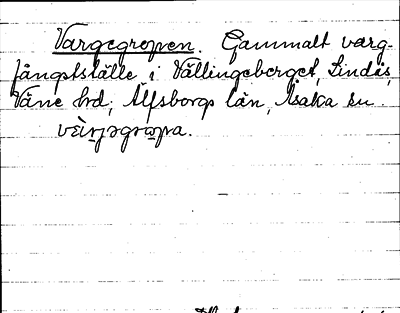 Vargegropen. Gammalt varg-
fångstställe i Vällingeberget, Lindås,
Väne hd, Älfsborgs län, Åsaka sn.